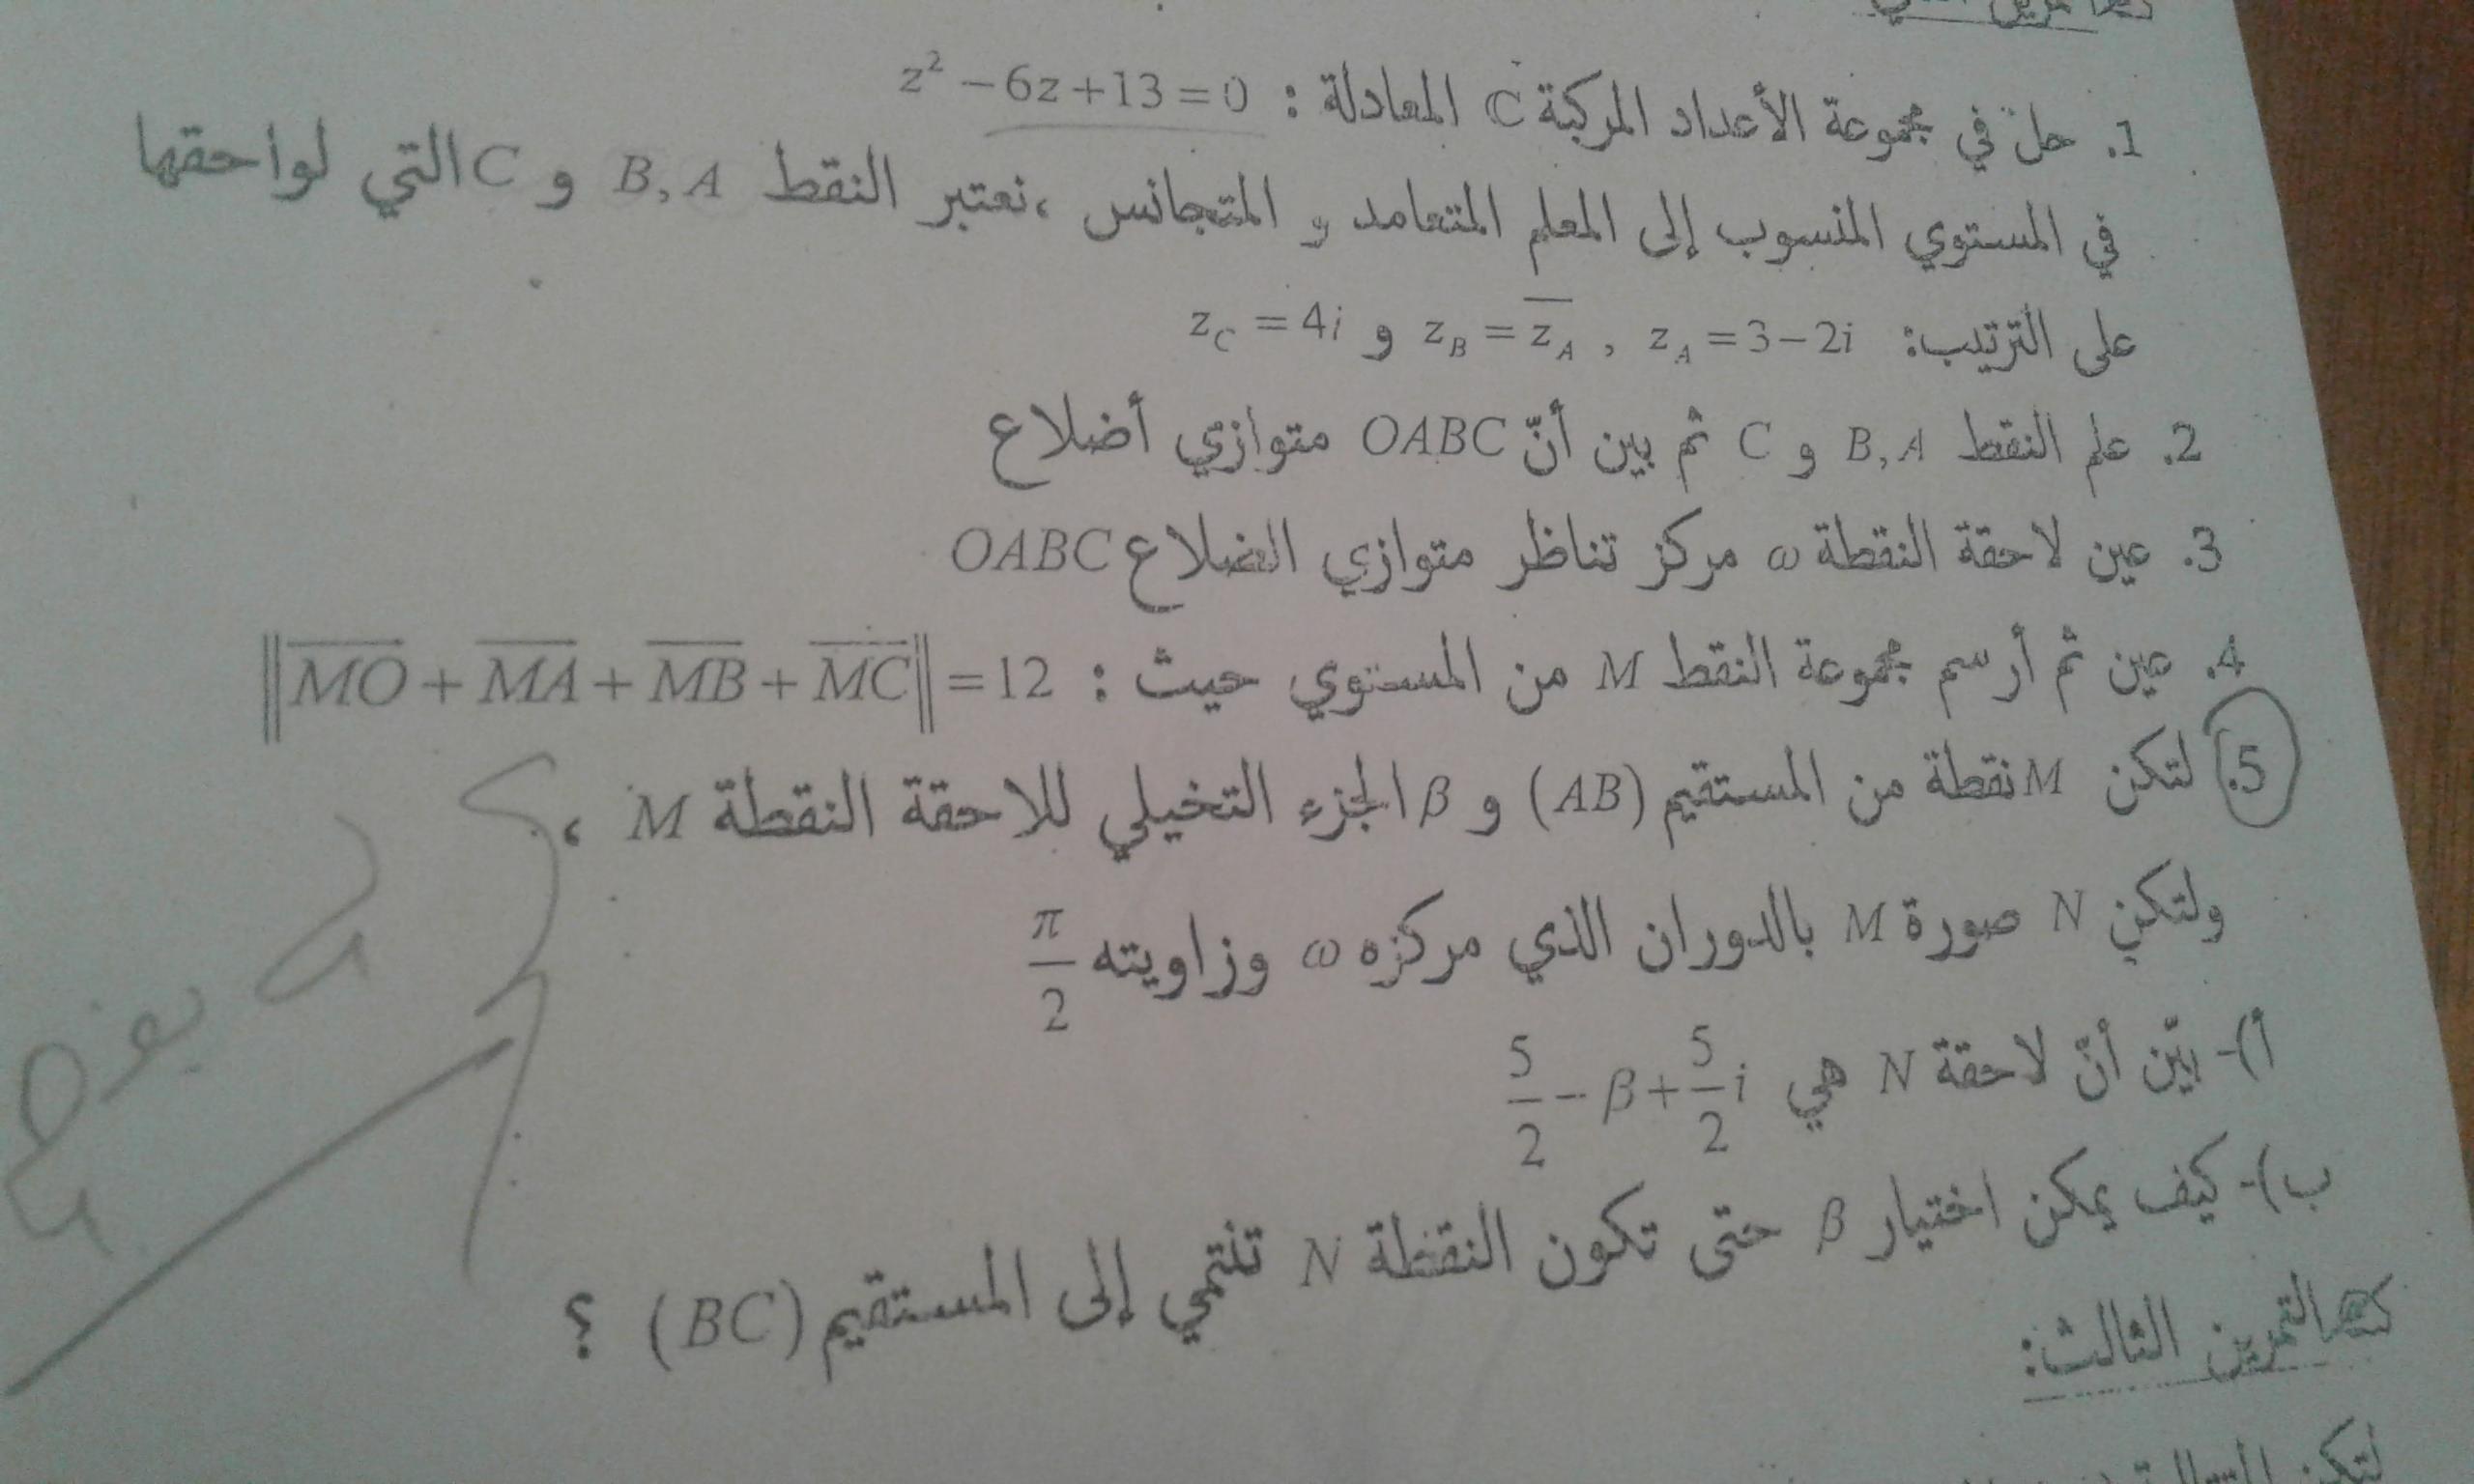 1. حلّ في مجموعة الأعداد المركبة C المعادلة : z² − 6z + 13 = 0
في المستوي المنسوب إلى المعلم المتعامد و المتجانس ،نعتبر النقط B, A و C التي لواحقها
على الترتيب: z_A = 3 − 2i , z_B = \overline{z_A} و z_C = 4i
2. علم النقط B, A و C ثم بين أنّ OABC متوازي أضلاع
3. عين لاحقة النقطة ω مركز تناظر متوازي الضلاع OABC
4. عين ثم أرسم مجموعة النقط M من المستوي حيث : ‖\overline{MO} + \overline{MA} + \overline{MB} + \overline{MC}‖ = 12
5. لتكن M نقطة من المستقيم (AB) و β الجزء التخيلي للاحقة النقطة M ،
ولتكن N صورة M بالدوران الذي مركزه ω وزاويته π/2
أ)- بيّن أنّ لاحقة N هي 5/2 − β + 5/2 i
ب)- كيف يمكن اختيار β حتى تكون النقطة N تنتمي إلى المستقيم (BC) ؟
التمرين الثالث: